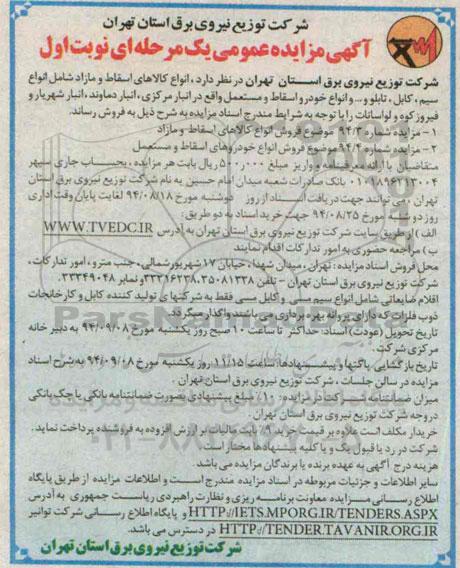 شرکت توزیع نیروی برق استان تهران
آگهی مزایده عمومی یک مرحله ای نوبت اول
شرکت توزیع نیروی برق استان تهران در نظر دارد ، انواع کالاهای اسقاط و مازاد شامل انواع
سیم ، کابل ، تابلو و... و انواع خودرو اسقاط و مستعمل واقع در انبار مرکزی ، انبار دماوند ، انبار شهریار و
فیروز کوه و لواسانات را با توجه به شرایط مندرج اسناد مزایده به شرح ذیل به فروش رساند.
۱ - مزایده شماره ۹۴/۳ موضوع فروش انواع کالاهای اسقاط و مازاد
۲ - مزایده شماره ۹۴/۴ موضوع فروش انواع خودروهای اسقاط و مستعمل
متقاضیان با ارائه معرفینامه و واریز مبلغ ۵۰۰,۰۰۰ ریال بابت هر مزایده ، بحساب جاری سپهر
بانک صادرات شعبه میدان امام حسین به نام شرکت توزیع نیروی برق استان
تهران ، می توانند جهت دریافت اسناد از روز دوشنبه مورخ ۹۴/۰۸/۱۸ لغایت پایان وقت اداری
روز دو شنبه مورخ ۹۴/۰۸/۲۵ جهت خرید اسناد به دو طریق:
الف ) از طریق سایت شرکت توزیع نیروی برق استان تهران به آدرس WWW.TVEDC.IR
ب ) مراجعه حضوری به امور تدارکات اقدام نمایند
محل فروش اسناد مزایده : تهران ، میدان شهدا ، خیابان ۱۷ شهریور شمالی ، جنب مترو ، امور تدارکات ،
شرکت توزیع نیروی برق استان تهران - تلفن ۳۵۰۸۱۳۳۸-۳۳۳۴۶۲۳۸ و نمابر ۳۳۳۴۹۰۴۸
اقلام ضایعاتی شامل انواع سیم مسی و کابل مسی فقط به شرکتهای تولید کننده کابل و کارخانجات
ذوب فلزات که دارای پروانه بهره برداری می باشند واگذار میگردد.
تاریخ تحویل (عودت) اسناد: حداکثر تا ساعت ۱۰ صبح روز یکشنبه مورخ ۹۴/۰۹/۰۸ به دبیر خانه
مرکزی شرکت.
تاریخ بازگشایی پاکتها و پیشنهادها: ساعت ۱۱/۱۵ روز یکشنبه مورخ ۹۴/۰۹/۰۸ به شرح اسناد
مزایده در سالن جلسات ، شرکت توزیع نیروی برق استان تهران .
میزان ضمانتنامه شرکت در مزایده : ۱۰٪ مبلغ پیشنهادی بصورت ضمانتنامه بانکی یا چک بانکی
در وجه شرکت توزیع نیروی برق استان تهران .
خریدار مکلف است علاوه بر قیمت خرید ۹ درصد مالیات بر ارزش افزوده به فروشنده پرداخت نماید.
شرکت در رد یا قبول یک و یا کلیه پیشنهادها مختار است.
هزینه درج آگهی به عهده برنده یا برندگان مزایده می باشد.
سایر اطلاعات و جزئیات مربوطه در اسناد مزایده مندرج است و اطلاعات مزایده از طریق پایگاه
اطلاع رسانی مزایده معاونت برنامه ریزی و نظارت راهبردی ریاست جمهوری به آدرس
HTTP://IETS.MPORG.IR/TENDERS.ASPX و پایگاه اطلاع رسانی شرکت توانیر
HTTP://TENDER.TAVANIR.ORG.IR در دسترس می باشد.
شرکت توزیع نیروی برق استان تهران